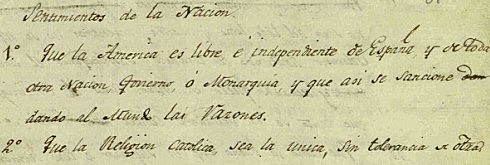 Sentimientos de la Nacion.
1º Que la America es libre, é independiente de España y de toda
otra Nacion, Govierno, ó Monarquia, y que asi se sancione dan
dando al Mund. las Razones.
2º Que la Religion Catolica, sea la unica, sin tolerancia de otra